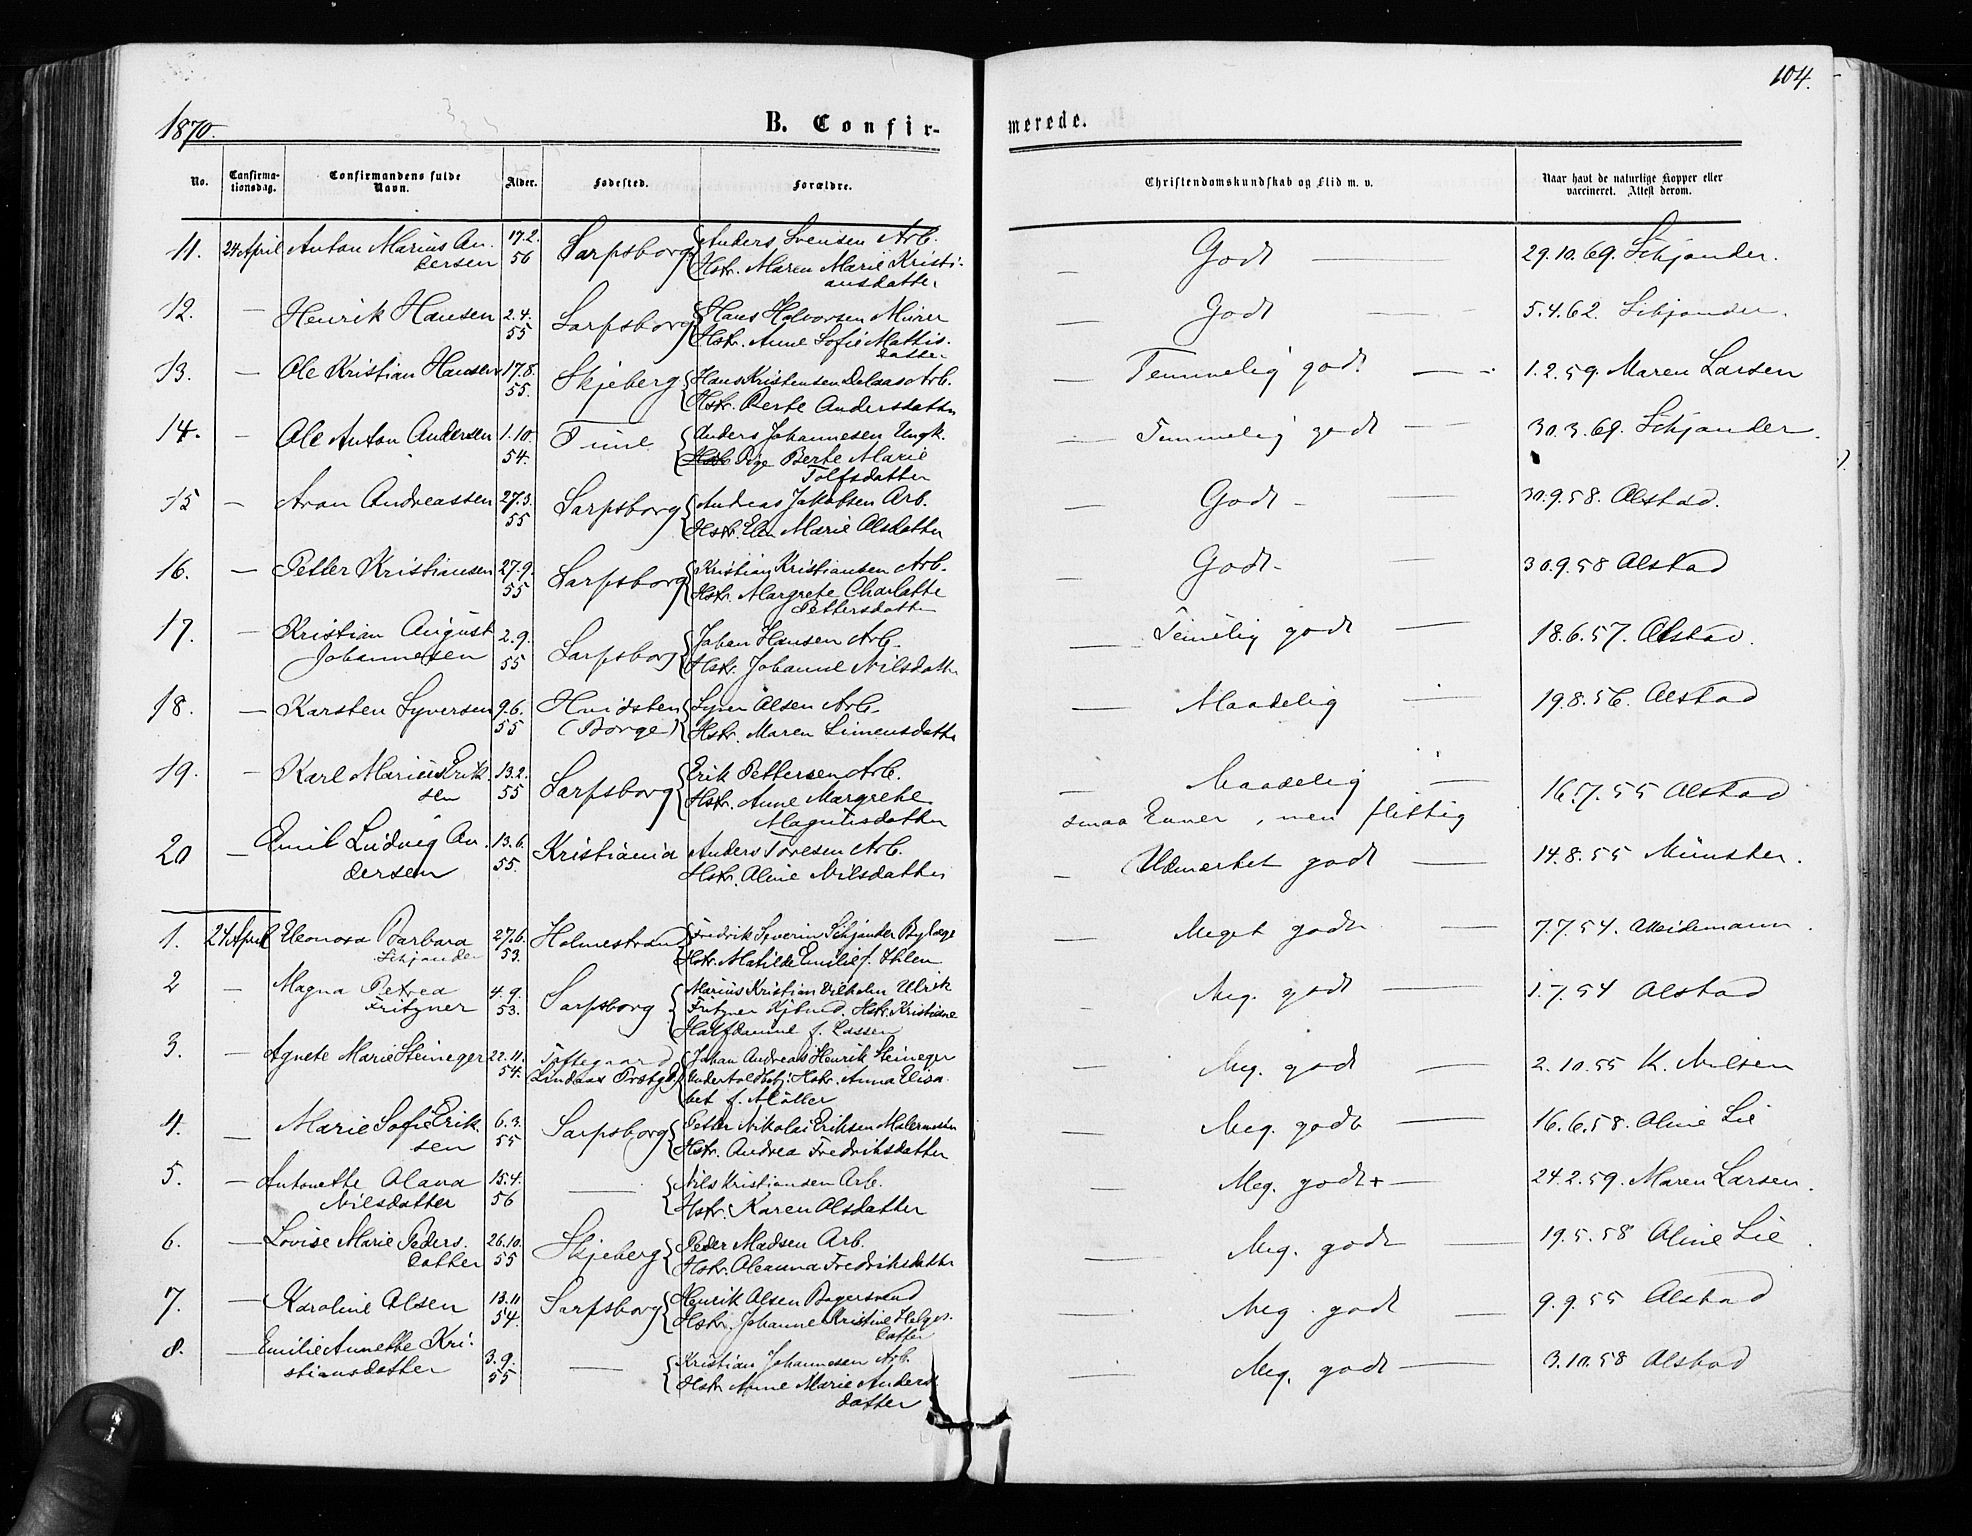 104.
1870.
B. Confir-
merede.
No.
Confirma-
tionsdag.
Confirmandens fulde
Navn.
Alder.
Fødested.
Forældre.
Christendomskundskab og Flid m. v.
Naar havt de naturlige Kopper eller
vaccineret. Attest derom.
11. 24 April Anton Marius An- 17.2. Sarpsborg Anders Svensen Arb. — Godt — 29.10.69. Schjander.
dersen 56 Hstr. Maren Marie Kristi-
ansdatter
12. — Henrik Hansen 2.4. Sarpsborg Hans Halvorsen Murer — Godt — 5.4.62. Schjander.
55 Hstr. Anne Sofie Mathis-
datter
13. — Ole Kristian Hansen 17.8. Skjeberg Hans Kristensen Arb. — Temmelig godt — 1.2.59. Maren Larsen
55. Hstr. Berte Andersdatter
14. — Ole Anton Andersen 1.10. Tune Anders Johannesen Ungk. — Temmelig godt — 30.3.69. Schjander.
54. Pige Berte Marie
Tolfsdatter
15 — Aron Andreassen 27.3. Sarpsborg Andreas Jakobsen Arb. — Godt — 30.9.58. Alstad.
55 Hstr. Elen Marie Olsdatter
16. — Petter Kristiansen 27.9. Sarpsborg Kristian Kristiansen Arb. — Godt — 30.9.58 Alstad
55 Hstr. Margrete Charlotte
Pettersdatter
17. — Kristian August 2.9. Sarpsborg Johan Hansen Arb. — Temelig godt — 18.6.57. Alstad.
Johannesen 55 Hstr. Johanne Nilsdatter
18. — Karsten Syversen 9.6. Hvidsten Syver Olsen Arb. — Maadelig — 19.8.56. Alstad
55 (Borge) Hstr. Maren Simensdatter
19. — Karl Marius Erik- 13.2. Sarpsborg Erik Pettersen Arb. — Maadelig — 16.7.55 Alstad
sen 55 Hstr. Anne Margrethe
Magnusdatter smaa Evner, men flittig
20 — Emil Ludvig An- 13.6. Kristiania Anders Toresen Arb. — Udmærket godt — 14.8.55 Münster.
dersen 55. Hstr. Oline Nilsdatter
1. 24 April Eleonora Barbara 27.6. Holmestrand Fredrik Severin Schjander Bylæge — Meget godt — 7.7.54. Weidemann.
Schjander 53. Hstr. Matilde Emilie f. Ihlen
2 — Magna Petrea 4.9. Sarpsborg Marius Kristian Vilhelm Ulrik Meg. godt — 1.7.54 Alstad
Fritzner 53. Fritzner Kjbmd. Hstr. Kristiane
Halfdanine f. Lassen
3. — Agnete Marie Steineger 22.11. Toftegaard Johan Andreas Henrik Steineger — Meg. godt — 2.10.55 K. Nilsen
54. Lindaas Præstgd. Undertoldbetj. Hstr. Anna Elisa-
bet f. Møller
4. — Marie Sofie Erik- 6.3. Sarpsborg Petter Nikolai Eriksen Malermester — Meg. godt — 16.6.58. Oline Lie
sen 55 Hstr. Andrea Fredriksdatter
5. — Antonette Olava 15.4. — Nils Kristiansen Arb. — Meg. godt + — 24.2.59. Maren Larsen.
Nilsdatter 56 Hstr. Karen Olsdatter
6. — Lovise Marie Peders- 26.10. Skjeberg Peder Madsen Arb. — Meg. godt — 19.5.58 Oline Lie.
datter 55 Hstr. Oleanna Fredriksdatter
7. — Karoline Olsen 13.11 Sarpsborg Henrik Olsen Bagersvend — Meg. godt — 9.9.55 Alstad
54. Hstr. Johanne Kristine Helges-
datter
8. — Emilie Annette Kri- 3.9. — Kristian Johannesen Arb. — Meg. godt — 3.10.58 Alstad
stiansdatter 55 Hstr. Anne Marie Anders
datter